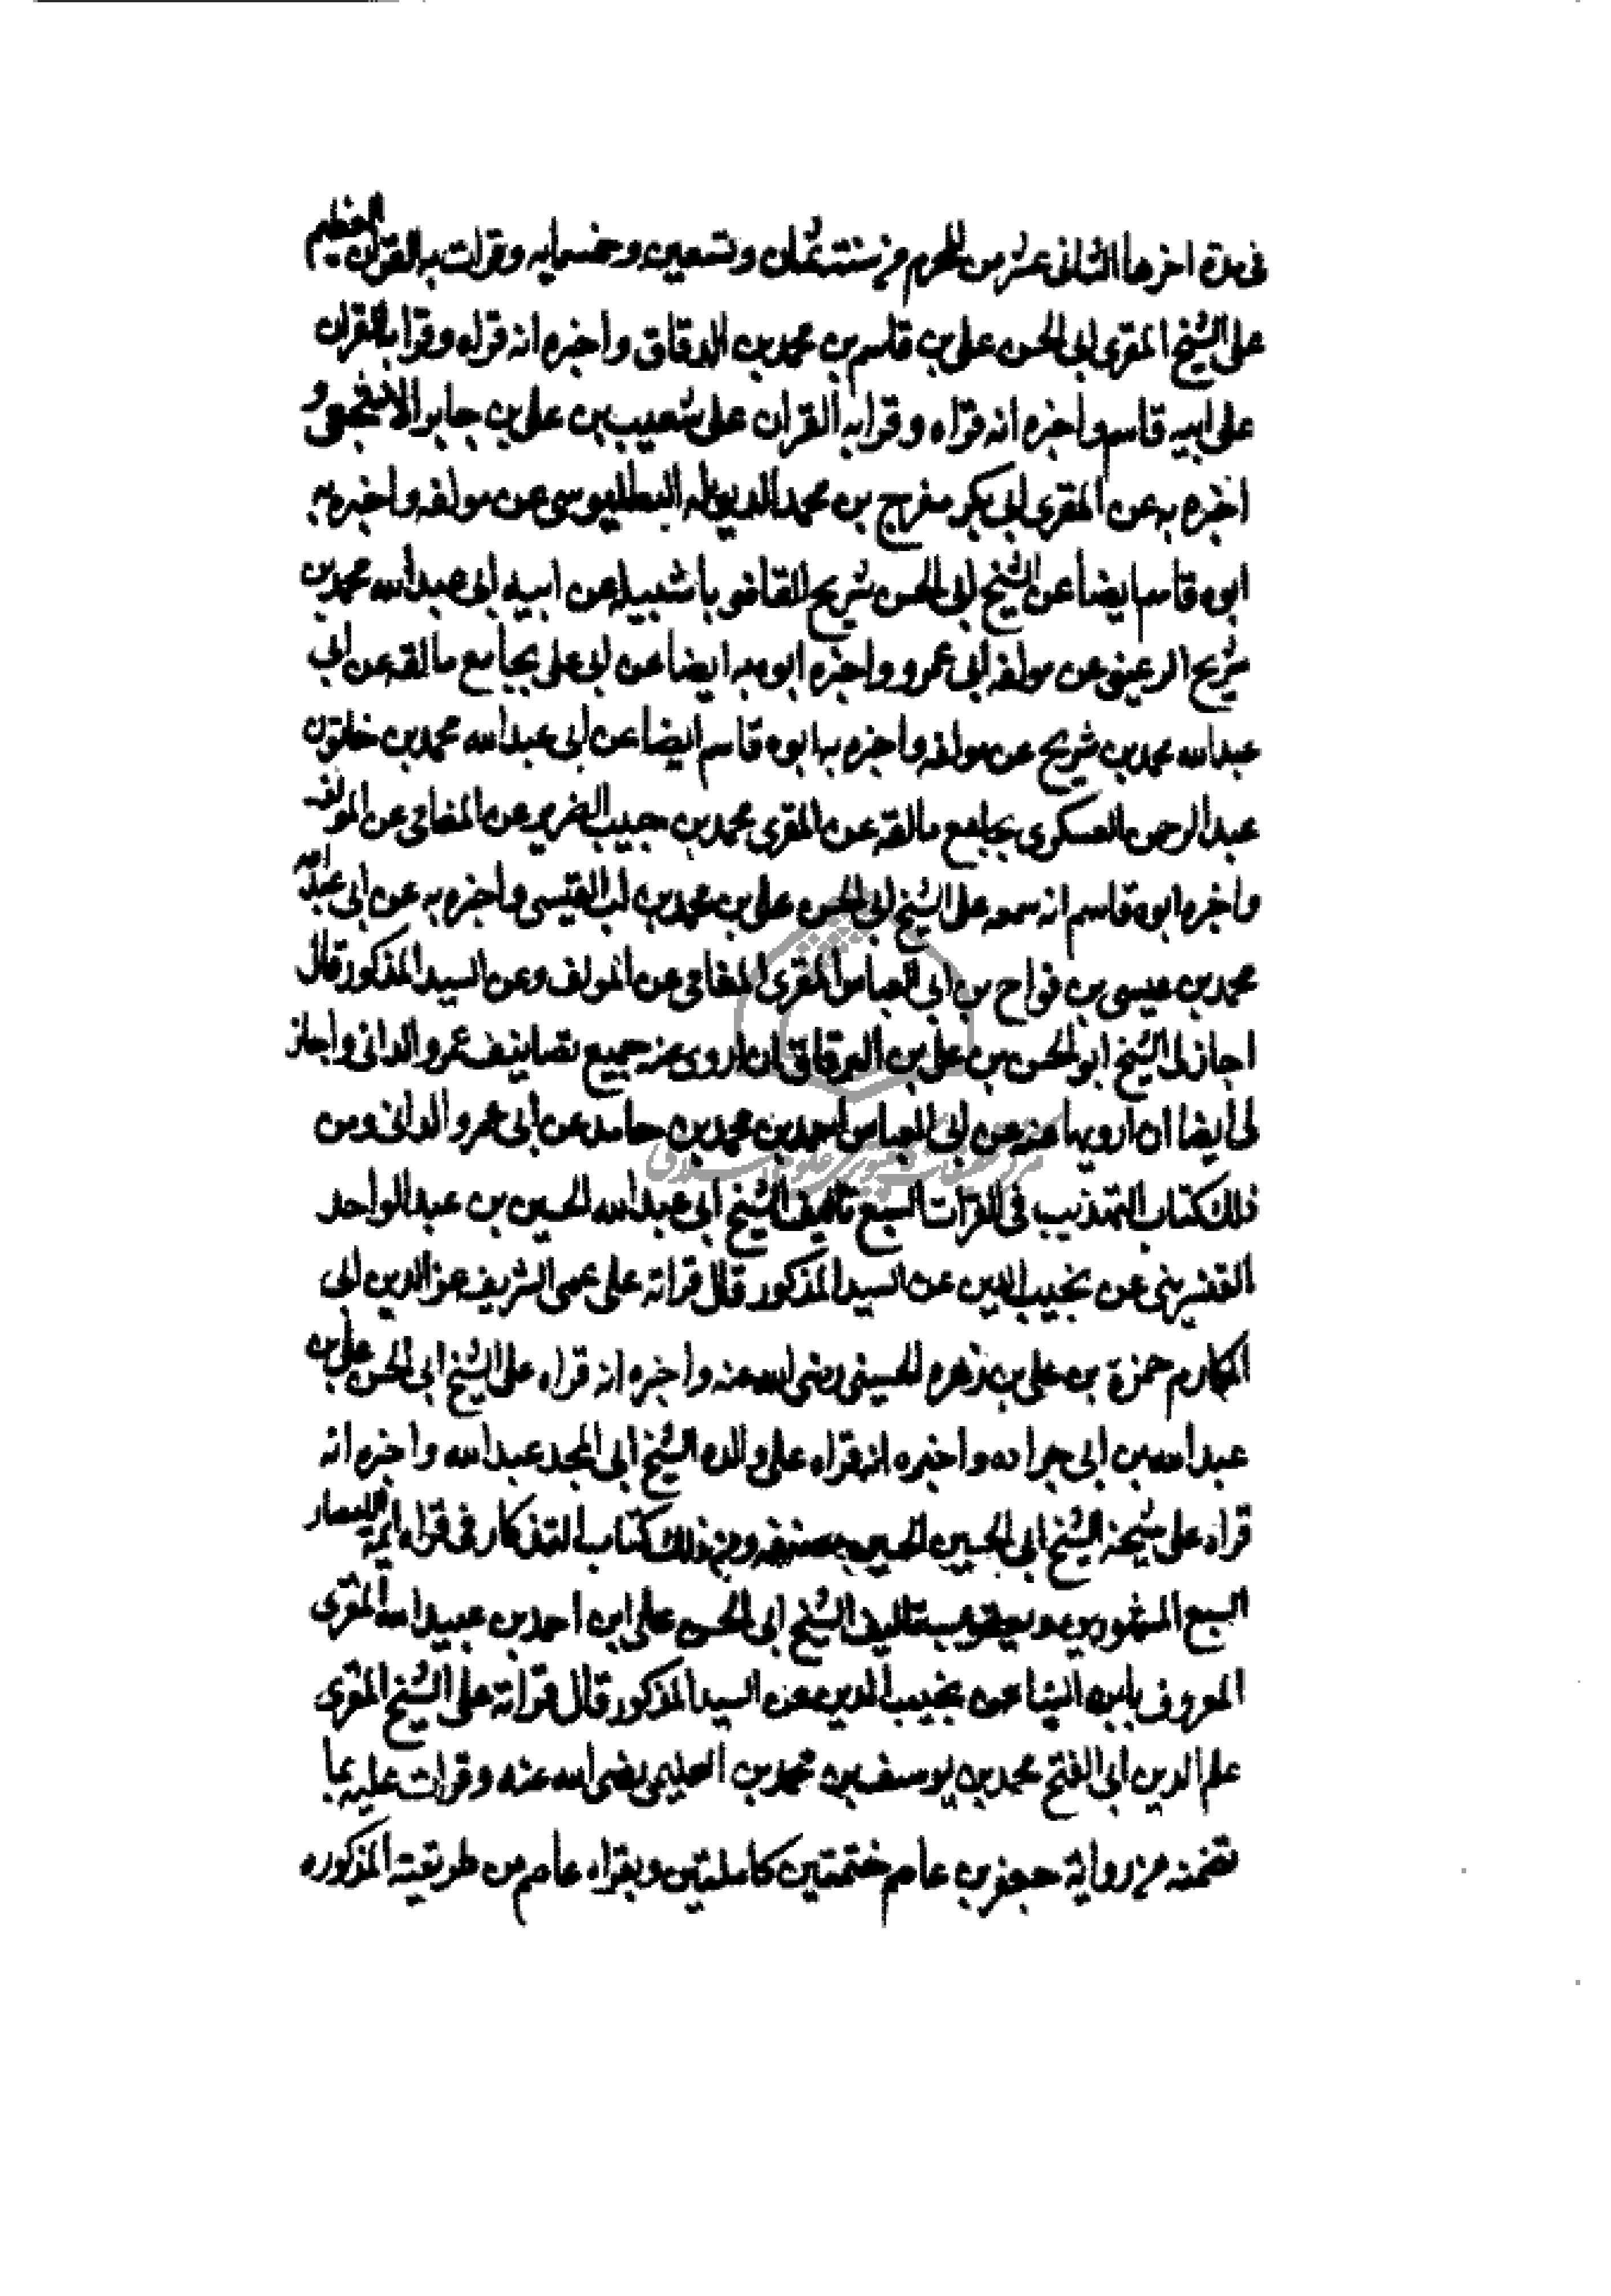 في مدة اخرها الثاني عشر من المحرم من سنة ثمان وتسعين وخمسمايه وقرات به القران العظيم
على الشيخ المقرى ابى الحسن على بن قاسم بن محمد بن الدقاق واخبره انه قراه وقرا به القران
على ابيه قاسم واخبره انه قراه وقرا به القران على شعيب بن على بن جابر الاشجعى و
اخبره به عن المقرى ابى بكر مفرج بن محمد البطليوسى عن مولفه واخبره به
ابوه قاسم ايضا عن الشيخ ابى الحسن شريح القاضى باشبيله عن ابيه ابى عبد الله محمد بن
شريح الرعينى عن مولفه ابى عمرو واخبره ابوه به ايضا عن ابى على بجامع مالقه عن ابى
عبد الله محمد بن شريح عن مولفه واخبره به ابوه قاسم ايضا عن ابى عبد الله محمد بن خلقون
عبد الرحمن العسكرى بجامع مالقه عن المقرى محمد بن حبيب الضرير عن المغامى عن المولف
واخبره ابوه قاسم انه سمعه على الشيخ ابى الحسن على بن محمد بن لب القيسى واخبره به عن ابى عبد الله
محمد بن عيسى بن فواح بن ابى العباس المقرى المغامى عن المولف وعن السيد المذكور قال
اجاز لى الشيخ ابو الحسن بن على بن الدقاق ان اروى عنه جميع تصانيف عمرو الدانى واجاز
لى ايضا ان ارويها عنه عن ابى العباس احمد بن محمد بن حامد عن ابى عمرو الدانى ومن
ذلك كتاب التهذيب فى القرات السبع تاليف الشيخ ابى عبد الله الحسين بن عبد الواحد
القنسرينى عن نجيب الدين عن السيد المذكور قال قراته على عمى الشريف عز الدين ابى
المكارم حمزة بن على بن زهره الحسينى رضى الله عنه واخبره انه قراه على الشيخ ابى الحسن على بن
عبد الله بن ابى جراده واخبره انه قراه على والده الشيخ ابى المجد عبد الله واخبره انه
قراه على شيخه الشيخ ابى الحسين الحسين مصنفه ومن ذلك كتاب التذكار فى قراه ايمة الامصار
السبع المشهورين تاليف الشيخ ابى الحسن على ابن احمد بن عبيد الله المقرى
المعروف بابن البنا عن نجيب الدين عن السيد المذكور قال قراته على الشيخ المقرى
علم الدين ابى الفتح محمد بن يوسف بن محمد بن العليمى رضى الله عنه وقرات عليه بما
تضمنه من رواية حفص بن عاصم ختمتين كاملتين وبقراه عاصم من طريقيه المذكوره